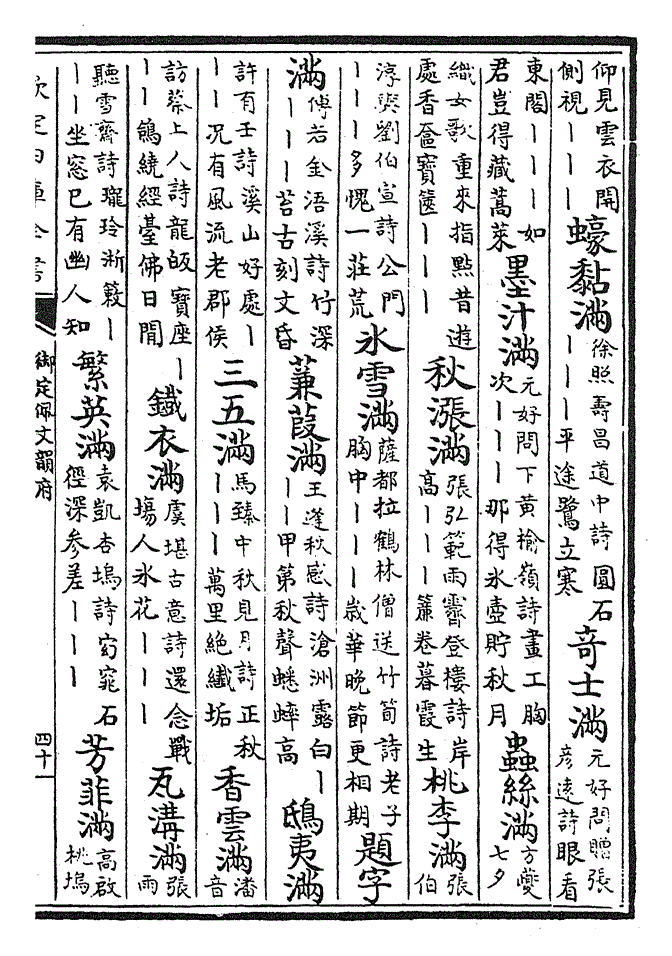 仰見雲衣開側視丨丨丨蠔黏滿徐照壽昌道中詩圓石丨丨丨平途鷺立寒奇士滿元好問贈張彦遠詩眼看
東閣丨丨丨如君豈得藏蒿萊墨汁滿元好問下黄榆嶺詩畫工胸次丨丨丨那得氷壺貯秋月蟲絲滿方夔七夕
織女歌重來指點昔遊處香奩寶篋丨丨丨秋漲滿張弘範雨霽登樓詩岸高丨丨丨簾卷暮霞生桃李滿張伯
淳與劉伯宣詩公門丨丨丨多愧一莊荒氷雪滿薩都拉鶴林僧送竹筍詩老子胸中丨丨丨歲華晚節更相期題字
滿傅若金浯溪詩竹深丨丨丨苔古刻文昏蒹葭滿王逢秋感詩滄洲露白丨丨丨甲第秋聲蟋蟀高鴟夷滿
許有壬詩溪山好處丨丨丨况有風流老郡侯三五滿馬臻中秋見月詩正秋丨丨丨萬里絶纖垢香雲滿潘音
訪蔡上人詩龍皈寶座丨丨丨鴿繞經臺佛日閒鐵衣滿虞堪古意詩還念戰場人氷花丨丨丨瓦溝滿張雨
聽雪齋詩瓏玲淅簌丨丨丨坐窓已有幽人知繁英滿袁凱杏塢詩窈窕石徑深參差丨丨丨芳菲滿高啟桃塢
欽定四庫全書
御定佩文韻府
四十一